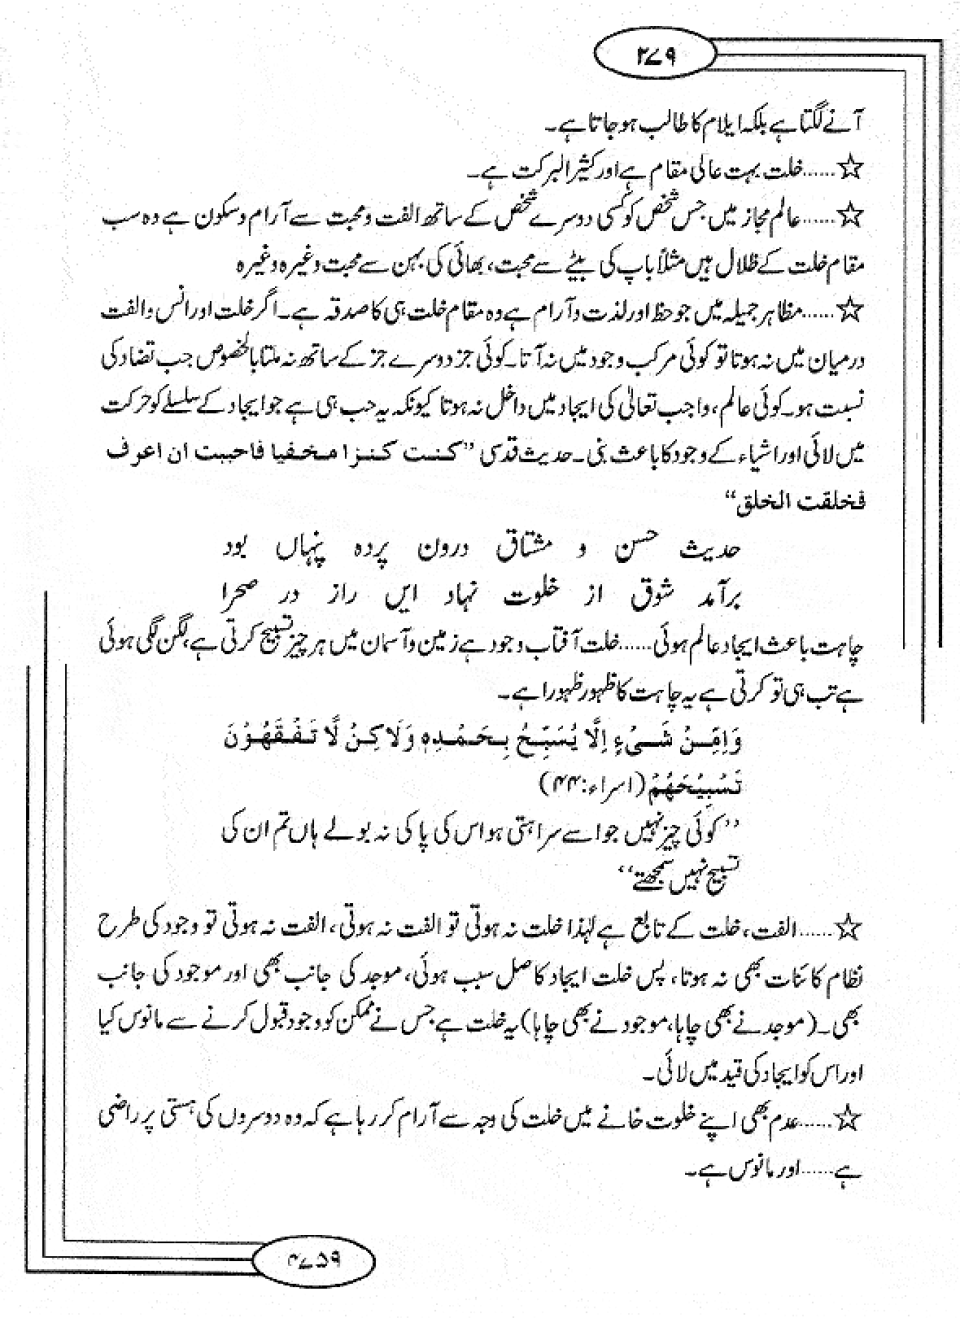 ۲۷۹
آنے لگتا ہے بلکہ ایلام کا طالب ہو جاتا ہے۔
☆......خلت بہت عالی مقام ہے اور کثیر البرکت ہے۔
☆......عالم مجاز میں جس شخص کو کسی دوسرے شخص کے ساتھ الفت و محبت سے آرام و سکون ہے وہ سب
مقام خلت کے ظلال ہیں مثلاً باپ کی بیٹے سے محبت، بھائی کی بہن سے محبت وغیرہ وغیرہ
☆......مظاہر جمیلہ میں جو حظ اور لذت و آرام ہے وہ مقام خلت ہی کا صدقہ ہے۔ اگر خلت اور انس و الفت
درمیان میں نہ ہوتا تو کوئی مرکب وجود میں نہ آتا۔ کوئی جز دوسرے جز کے ساتھ نہ ملتا بالخصوص جب تضاد کی
نسبت ہو۔ کوئی عالم، واجب تعالیٰ کی ایجاد میں داخل نہ ہوتا کیونکہ یہ حب ہی ہے جو ایجاد کے سلسلے کو حرکت
میں لائی اور اشیاء کے وجود کا باعث بنی۔ حدیث قدسی ”کنت کنزا مخفیا فاحببت ان اعرف
فخلقت الخلق“
حدیث حسن و مشتاق درون پردہ پنہاں بود
برآمد شوق از خلوت نہاد ایں راز در صحرا
چاہت باعث ایجاد عالم ہوئی......خلت آفتاب وجود ہے زمین و آسمان میں ہر چیز تسبیح کرتی ہے، لگن لگی ہوئی
ہے تب ہی تو کرتی ہے یہ چاہت کا ظہور ظہورا ہے۔
وَاِمِّنْ شَیْءٍ اِلَّا یُسَبِّحُ بِحَمْدِہٖ وَلَاکِنْ لَّا تَفْقَهُوْنَ
تَسْبِیْحَهُمْ (اسراء:۴۴)
”کوئی چیز نہیں جو اسے سراہتی ہو اس کی پاکی نہ بولے ہاں تم ان کی
تسبیح نہیں سمجھتے“
☆......الفت، خلت کے تابع ہے لہٰذا خلت نہ ہوتی تو الفت نہ ہوتی، الفت نہ ہوتی تو وجود کی طرح
نظام کائنات بھی نہ ہوتا، پس خلت ایجاد کا اصل سبب ہوئی، موجد کی جانب بھی اور موجود کی جانب
بھی۔ (موجد نے بھی چاہا، موجود نے بھی چاہا) یہ خلت ہے جس نے ممکن کو وجود قبول کرنے سے مانوس کیا
اور اس کو ایجاد کی قید میں لائی۔
☆......عدم بھی اپنے خلوت خانے میں خلت کی وجہ سے آرام کر رہا ہے کہ وہ دوسروں کی ہستی پر راضی
ہے......اور مانوس ہے۔